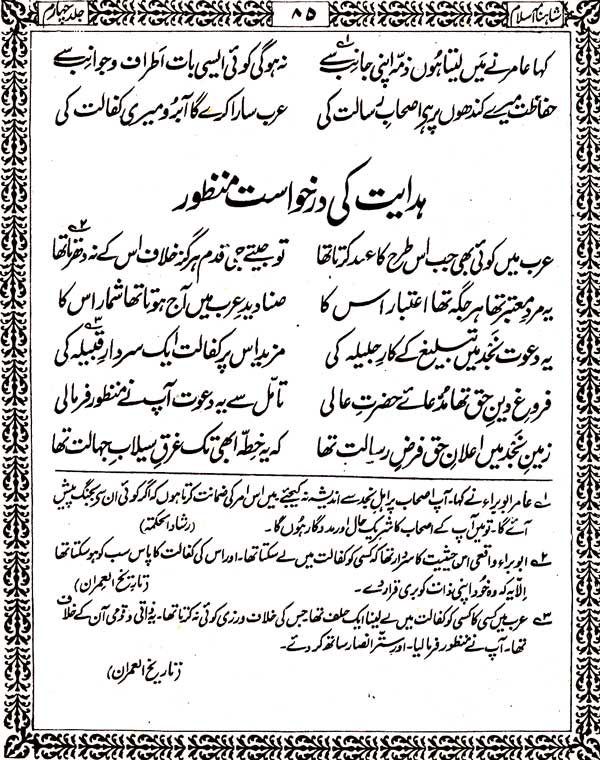 شاہنامہ اسلام ۸۵ جلد چہارم
کہا عامر نے میں لیتا ہوں ذمہ اپنی جانب سے نہ ہوگی کوئی ایسی بات اطراف و جوانب سے
حفاظت میرے کندھوں پر ہے اصحابِ رسالت کی عرب سارا کرے گا آبرو میری کفالت کی
ہدایت کی درخواست منظور
عرب میں کوئی بھی جب اس طرح کا عہد کرتا تھا تو جیتے جی قدم ہرگز خلاف اس کے نہ دھرتا تھا
یہ مردِ معتبر تھا ہر جگہ تھا اعتبار اس کا صنادیدِ عرب میں آج ہوتا تھا شمار اس کا
یہ دعوت نجد میں تبلیغ کے کارِ جلیلہ کی مزید اس پر کفالت ایک سردارِ قبیلہ کی
فروغِ دینِ حق تھا مدعائے حضرتِ عالی تامل سے یہ دعوت آپ نے منظور فرمالی
زمینِ نجد میں اعلانِ حق فرضِ رسالت تھا کہ یہ خطہ ابھی تک غرقِ سیلابِ جہالت تھا
۱؎ عامر ابو براء نے کہا۔ آپ اصحاب پر اہلِ نجد سے اندیشہ نہ کیجئے۔ میں اس امر کی ضمانت کرتا ہوں کہ اگر کوئی ان پر بجنگ پیش
آئے گا۔ تو میں آپ کے اصحاب کا شریکِ حال اور مددگار ہوں گا۔ (رشاد الحکمۃ)
۲؎ ابو براء واقعی اس حیثیت کا سردار تھا کہ کسی کو کفالت میں لے سکتا تھا۔ اور اس کی کفالت کا پاس سب کو ہو سکتا تھا
اِلّا یہ کہ وہ خود اپنی ذات کو بری قرار دے۔ (تاریخ العمران)
۳؎ عرب میں کسی کا کسی کو کفالت میں لے لینا ایک حلف تھا۔ جس کی خلاف ورزی کوئی نہ کرتا تھا۔ یہ ذاتی و قومی آن کے خلاف
تھا۔ آپ نے منظور فرما لیا۔ اور ستر انصار ساتھ کر دئے۔
(تاریخ العمران)